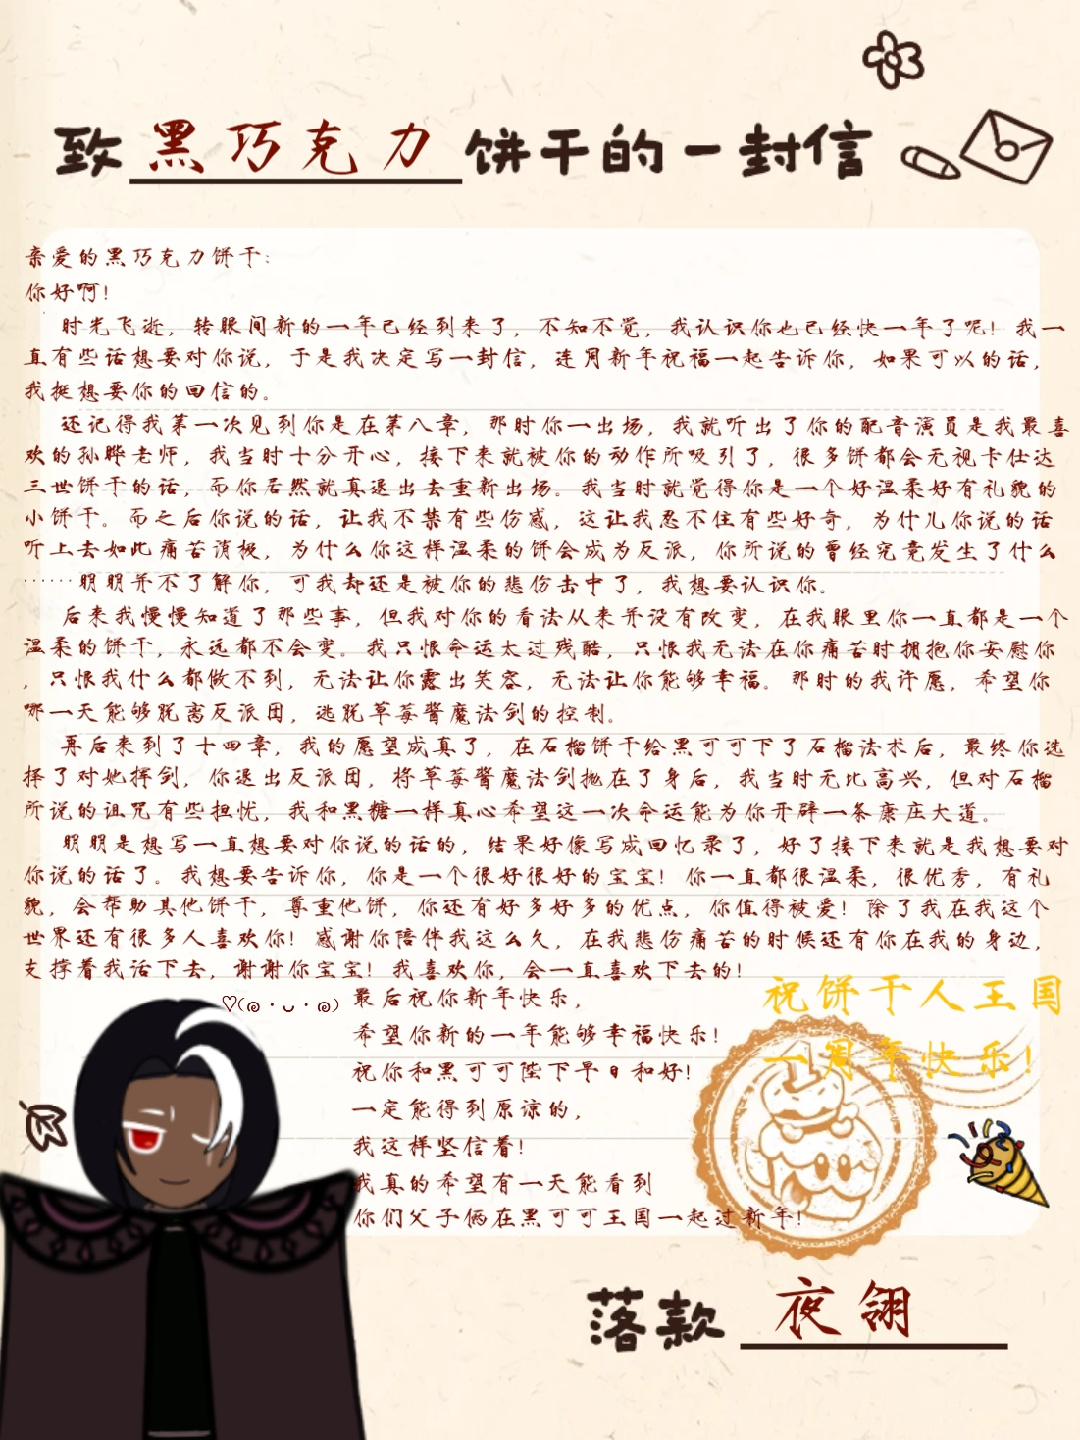 致黑巧克力饼干的一封信
亲爱的黑巧克力饼干：
你好啊！
时光飞逝，转眼间新的一年已经到来了，不知不觉，我认识你也已经快一年了呢！我一
直有些话想要对你说，于是我决定写一封信，连同新年祝福一起告诉你，如果可以的话，
我挺想要你的回信的。
还记得我第一次见到你是在第八章，那时你一出场，我就听出了你的配音演员是我最喜
欢的孙晔老师，我当时十分开心，接下来就被你的动作所吸引了，很多饼都会无视卡仕达
三世饼干的话，而你居然就真退出去重新出场。我当时就觉得你是一个好温柔好有礼貌的
小饼干。而之后你说的话，让我不禁有些伤感，这让我忍不住有些好奇，为什儿你说的话
听上去如此痛苦消极，为什么你这样温柔的饼会成为反派，你所说的曾经究竟发生了什么
······明明并不了解你，可我却还是被你的悲伤击中了，我想要认识你。
后来我慢慢知道了那些事，但我对你的看法从来并没有改变，在我眼里你一直都是一个
温柔的饼干，永远都不会变。我只恨命运太过残酷，只恨我无法在你痛苦时拥抱你安慰你
，只恨我什么都做不到，无法让你露出笑容，无法让你能够幸福。那时的我许愿，希望你
哪一天能够脱离反派团，逃脱草莓酱魔法剑的控制。
再后来到了十四章，我的愿望成真了，在石榴饼干给黑可可下了石榴法术后，最终你选
择了对她挥剑，你退出反派团，将草莓酱魔法剑抛在了身后，我当时无比高兴，但对石榴
所说的诅咒有些担忧，我和黑糖一样真心希望这一次命运能为你开辟一条康庄大道。
明明是想写一直想要对你说的话的，结果好像写成回忆录了，好了接下来就是我想要对
你说的话了。我想要告诉你，你是一个很好很好的宝宝！你一直都很温柔，很优秀，有礼
貌，会帮助其他饼干，尊重他饼，你还有好多好多的优点，你值得被爱！除了我在我这个
世界还有很多人喜欢你！感谢你陪伴我这么久，在我悲伤痛苦的时候还有你在我的身边，
支撑着我活下去，谢谢你宝宝！我喜欢你，会一直喜欢下去的！
♡(๑・ᴗ・๑)
最后祝你新年快乐，
希望你新的一年能够幸福快乐！
祝你和黑可可陛下早日和好！
一定能得到原谅的，
我这样坚信着！
我真的希望有一天能看到
你们父子俩在黑可可王国一起过新年！
祝饼干人王国
一周年快乐！
落款 夜翎